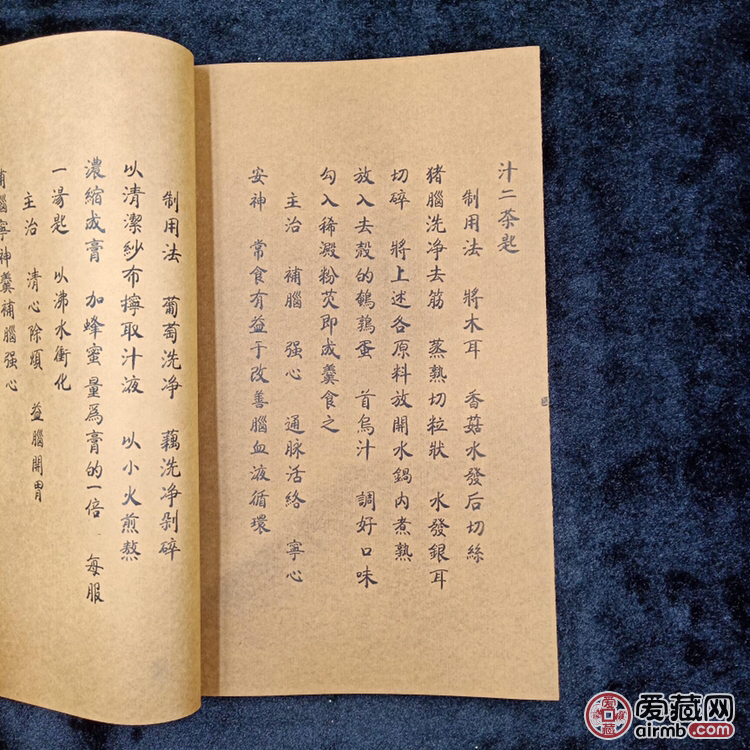 汁二茶匙
制用法 將木耳 香菇水發后切絲
猪腦洗净去筋 蒸熟切粒狀 水發銀耳
切碎 將上述各原料放開水鍋内煮熟
放入去殻的鹌鹑蛋 首烏汁 調好口味
勾入稀澱粉芡即成羹食之
主治 補腦 强心 通脉活絡 寧心
安神 常食有益于改善腦血液循環
制用法 葡萄洗净 藕洗净剁碎
以清潔紗布擰取汁液 以小火煎熬
濃缩成膏 加蜂蜜量爲膏的一倍 每服
一湯匙 以沸水衝化
主治 清心除煩 益腦開胃
補腦寧神羹補腦强心
爱藏网
airmb.com